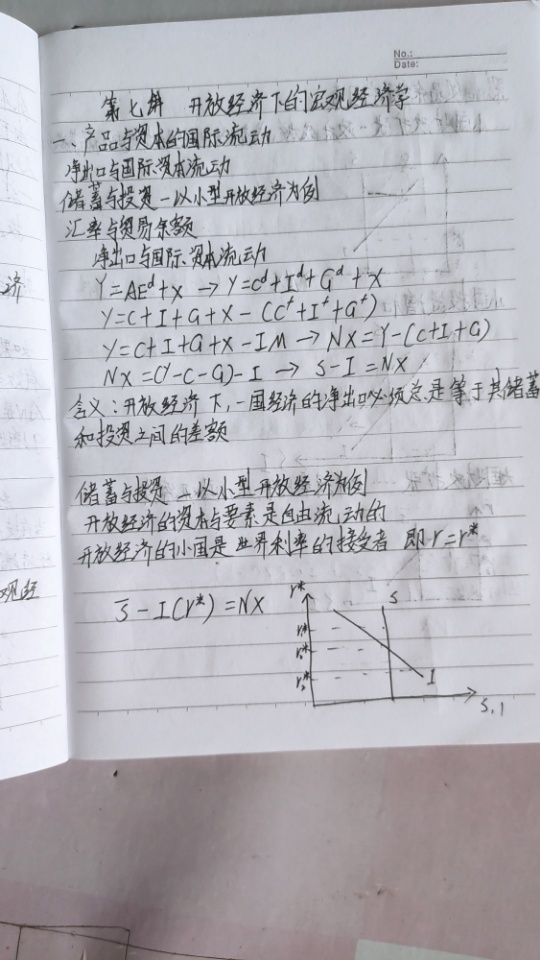 No.:
Date:
第七讲 开放经济下的宏观经济学
一、产品与资本的国际流动
净出口与国际资本流动
储蓄与投资-以小型开放经济为例
汇率与贸易余额
净出口与国际资本流动
Y=AE^d+X → Y=C^d+I^d+G^d+X
Y=C+I+G+X-(C^f+I^f+G^f)
Y=C+I+G+X-IM → NX=Y-(C+I+G)
NX=(Y-C-G)-I → S-I=NX
含义:开放经济下,一国经济的净出口必须总是等于其储蓄
和投资之间的差额
储蓄与投资-以小型开放经济为例
开放经济的资本与要素是自由流动的
开放经济的小国是世界利率的接受者 即r=r*
S̄-I(r*)=NX
r*
S
r*
r*
r*
I
S,I
济
观经